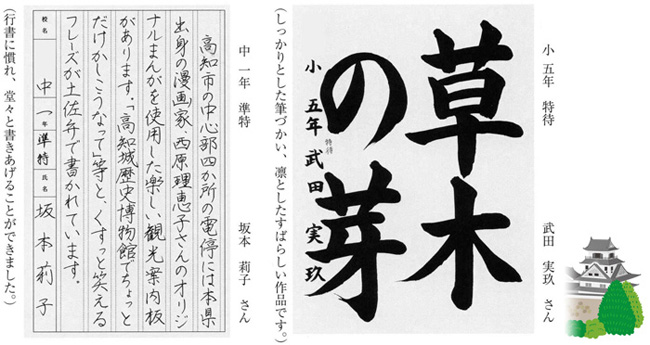 小 五年 特待 武田 実玖 さん
草木
の芽
小 五年 武田 実玖
特待
(しっかりとした筆づかい、凛としたすばらしい作品です。)
中 一年 準特 坂本 莉子 さん
高知市の中心部四か所の電停には本県
出身の漫画家、西原理恵子さんのオリジ
ナルまんがを使用した楽しい観光案内板
があります。「高知城歴史博物館でちょっと
だけかしこうなって」等と、くすっと笑える
フレーズが土佐弁で書かれています。
校名 中 一年 準特 氏名 坂本莉子
(行書に慣れ、堂々と書きあげることができました。)